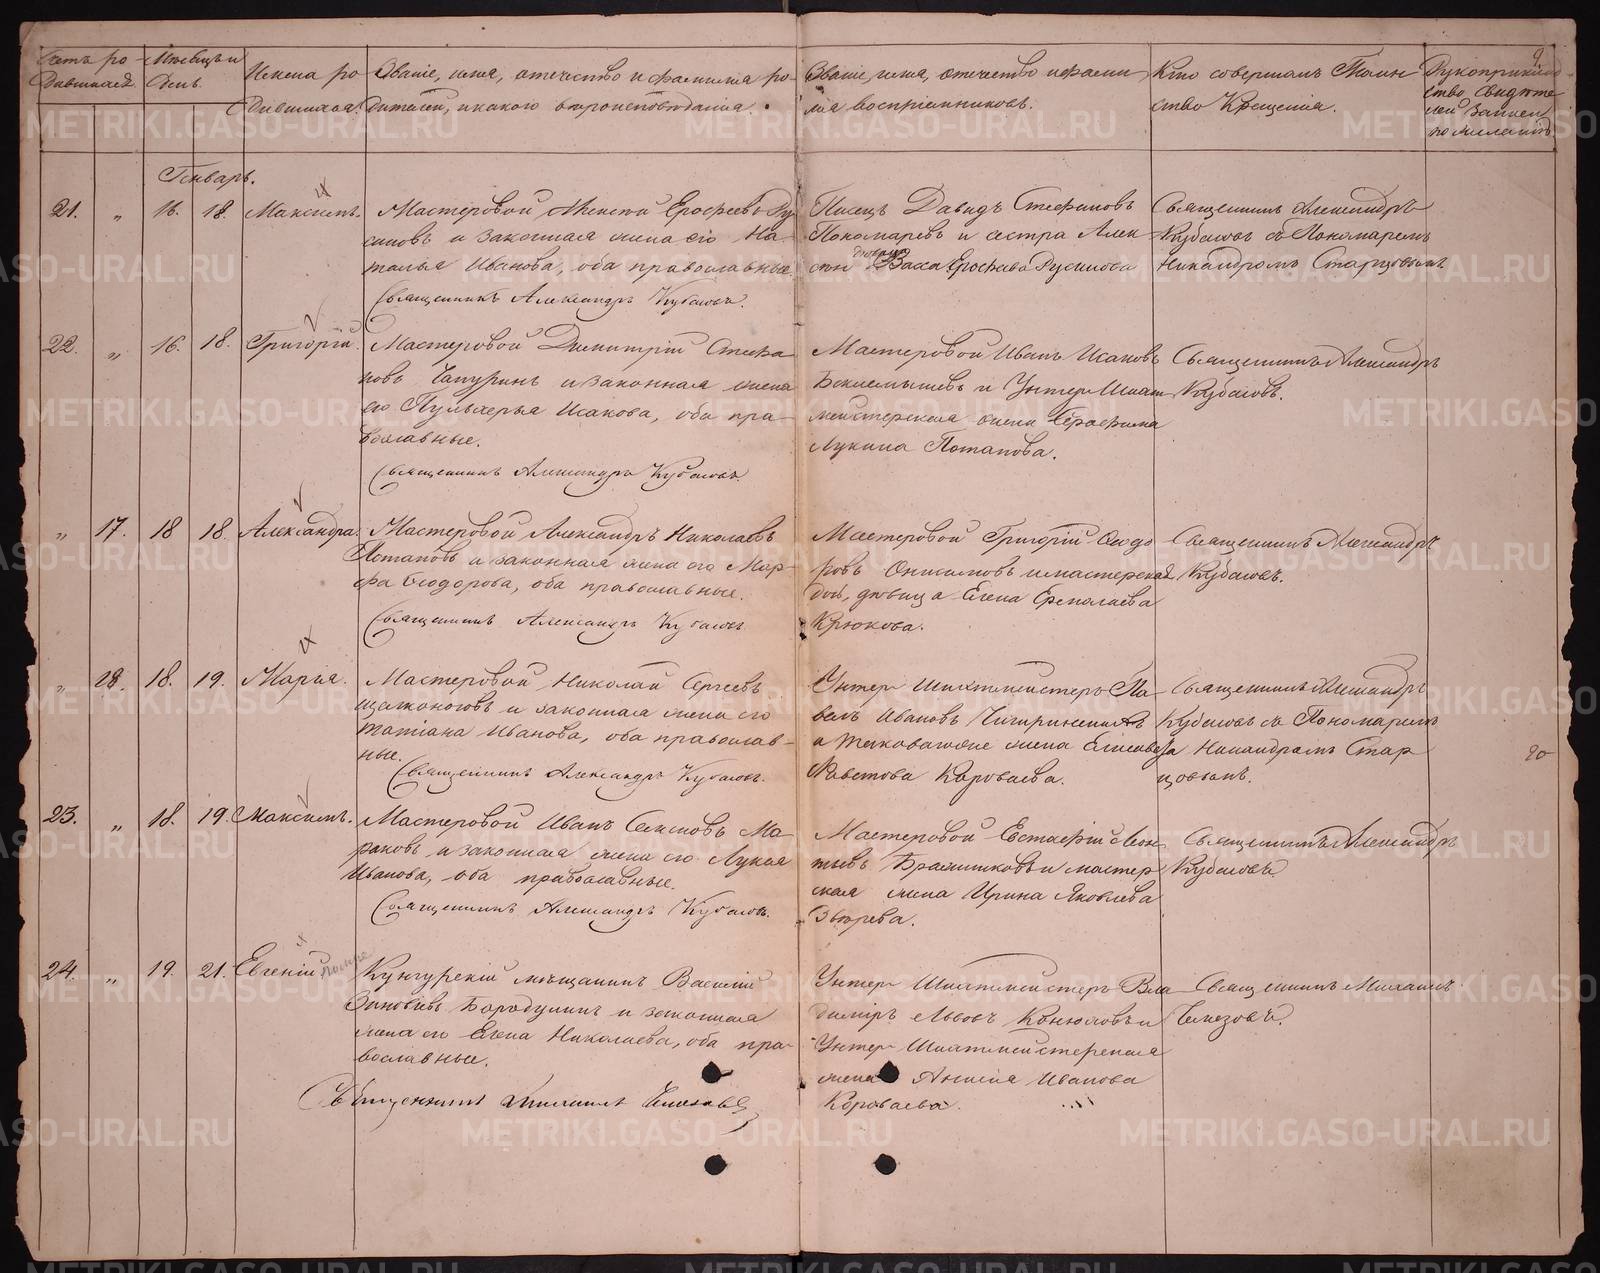 Счетъ ро-
дившихся.
Мѣсяцъ и
День.
Имена ро-
дившихся.
Званіе, имя, отечество и фамилія ро-
дителей, и какого вѣроисповѣданія.
Званіе, имя, отечество и фами-
лія воспріемниковъ.
Кто совершалъ Таин-
ство Крещенія.
Рукоприклад-
ство свидѣте-
лей записи
по желанію
9
Генварь.
21. „ 16. 18. Максимъ.
Мастеровой Ерофеевъ Ру-
синовъ и законная жена его На-
талья Иванова, оба православные.
Священникъ Александръ Кубасовъ.
Писецъ Давидъ Стефановъ
Пономаревъ и сестра Алек-
дѣвица
Ерофеева Русинова
Священникъ Александръ
Кубасовъ съ Пономаремъ
Никандромъ Старцовымъ
22. „ 16. 18. Григорій.
Мастеровой Димитрій Стефа-
новъ Чапуринъ и законная жена
его Пульхерья Исакова, оба пра-
вославные.
Священникъ Александръ Кубасовъ.
Мастеровой Иванъ Исаковъ
Беклемышевъ и Унтеръ Шихт-
мейстерская жена Серафима
Лукина Потапова.
Священникъ Александръ
Кубасовъ.
„ 17. 18 18. Александра.
Мастеровой Александръ Николаевъ
Потаповъ и законная жена его Мар-
фа Ѳеодорова, оба православные.
Священникъ Александръ Кубасовъ
Мастеровой Григорій Ѳеодо
ровъ Онисимовъ и мастерская
дочь, дѣвица Елена Ермолаева
Крюкова.
Священникъ Александръ
Кубасовъ.
„ 18. 18. 19. Марія.
Мастеровой Николай Сергеевъ
Щелконоговъ и законная жена его
Татіана Иванова, оба православ-
ные.
Священникъ Александръ Кубасовъ.
Унтеръ Шихтмейстеръ Па-
велъ Ивановъ
жена Елисаве
Короваева.
Священникъ Александръ
Кубасовъ съ Пономаремъ
Никандромъ Стар
цовымъ.
20
23. „ 18. 19. Максимъ.
Мастеровой Иванъ Ма-
раковъ и законная жена его Лукія
Иванова, оба православные.
Священникъ Александръ Кубасовъ.
Мастеровой Евстафій Леон-
тьевъ и мастер
ская жена Ирина Яковлева
Звѣрева.
Священникъ Александръ
Кубасовъ
24. „ 19. 21. Евгеній
Кунгурскій мѣщанинъ Василій
Зиновьевъ Бородулинъ и законная
жена его Елена Николаева, оба пра-
вославные.
Священникъ Михаилъ
Унтеръ Шихтмейстеръ Вла
диміръ Львовъ Конюховъ и
Унтеръ Шихтмейстерская
жена Анисія Иванова
Короваева.
Священникъ Михаилъ
METRIKI.GASO-URAL.RU